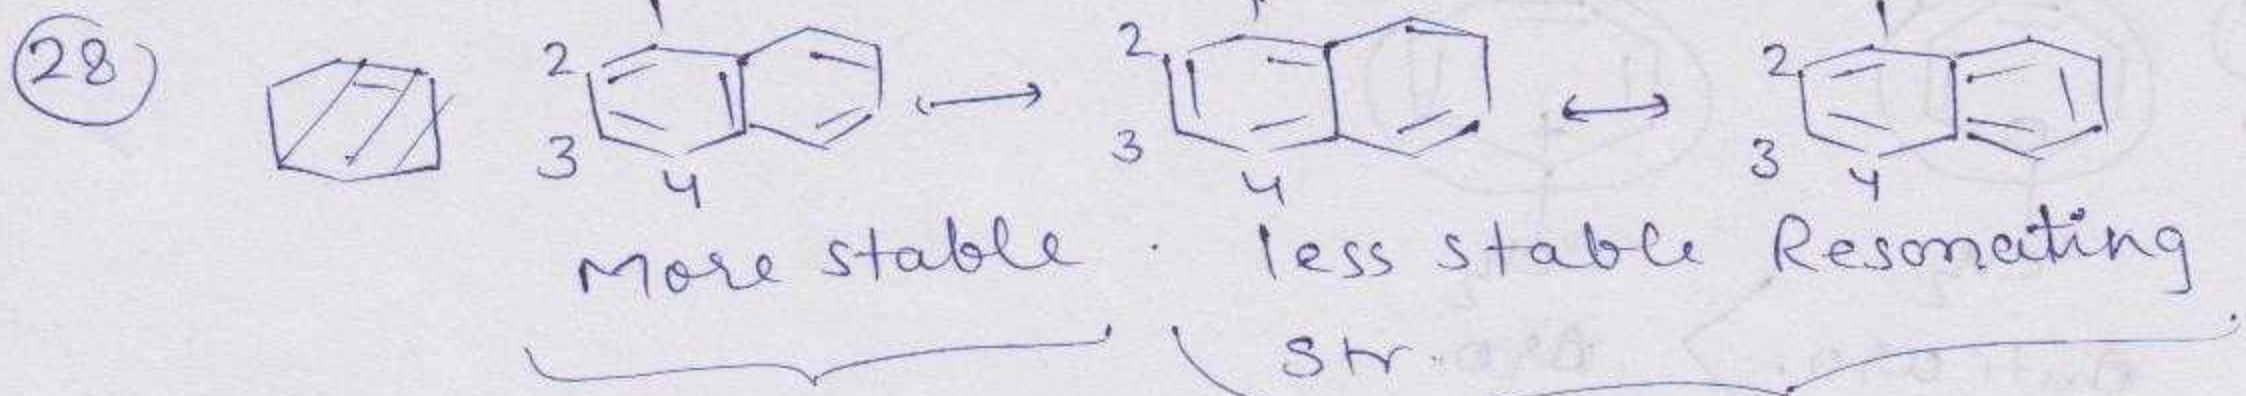 28
1 1 1
2 2 2
3 3 3
4 4 4
More stable. less stable Resonating
Str.